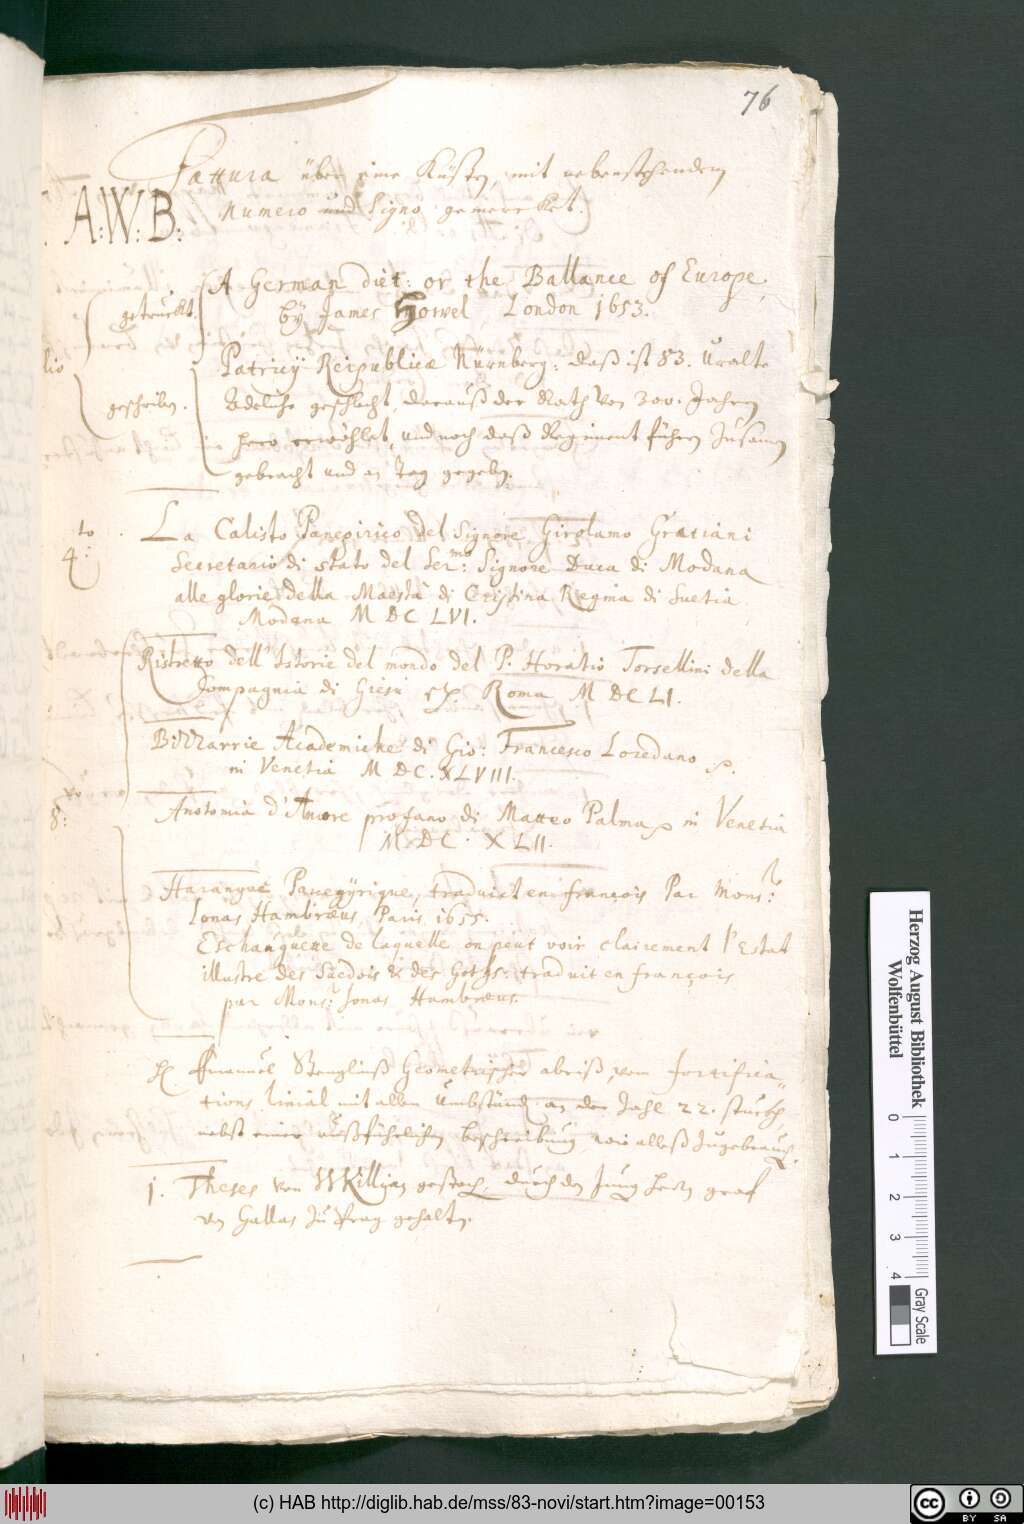 76
Fattura über eine Küsten, mit nebenstehendem
A:W:B: Numero und Signo gemercket.
A German diet: or the Ballance of Europe,
getruckt. by James Howel London 1653.
lio Patricÿ Reipublicæ Nürnberg: daß ist 83. Uralte
geschriben. Adeliche geschlecht, darauß der Rath von 300. Jahren
hero erwöhlet, und noch daß Regiment führen Zusamen
gebracht und an Tag gegeben.
to
4:
La Calisto Panegirico del Signore Girolamo Gratiani
Secretario di stato del Ser.mo: Signore Duca di Modana
alle glorie della Maestà di Cristina Regina di Suetia
Modana M DC LVI.
Ristretto dell' Istorie del mondo del P. Horatio Torsellini della
Compagnia di Giesu Roma M DC LI.
Bizzarrie Academiche di Gio: Francesco Loredano
in Venetia M DC. XLVIII.
8:
Anotomia d'Amore profano di Matteo Palma in Venetia
M DC. XLII.
Harangue Panegÿrique, traduict en françois Par Mons:r
Ionas Hambræus Paris 1655.
Eschanguette de laquelle on peut voir clairement l'Estat
illustre des Suedois & des Goths: traduit en françois
par Mons:r Jonas Hambræus.
Emanuel Stengliuß Geometrischer abriß, vom fortifica=
tions linial mit allen Umbständ an der Zahl 22. stuckh,
nebst einer außführlichen beschreibung wie alleß Zugebrauch.
1. Theses von W Killian gestoch, durch den Jung herrn graf
von Gallas zu Prag gehalten.
Herzog August Bibliothek
Wolfenbüttel
0 1 2 3 4
Gray Scale
(c) HAB http://diglib.hab.de/mss/83-novi/start.htm?image=00153
cc BY SA